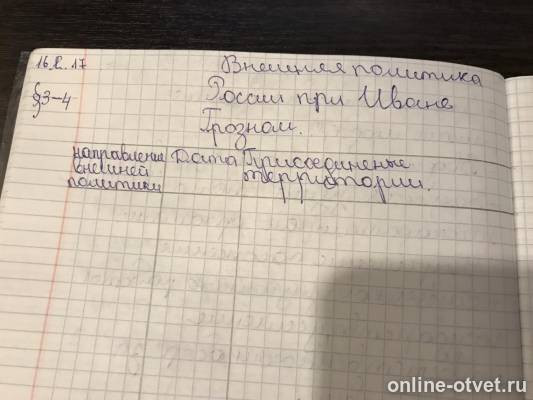 16.X.17
Внешняя политика
§3-4
России при Иване
Грозном.
направление
внешней
политики
Дата
Присоединеные
территории.
online-otvet.ru